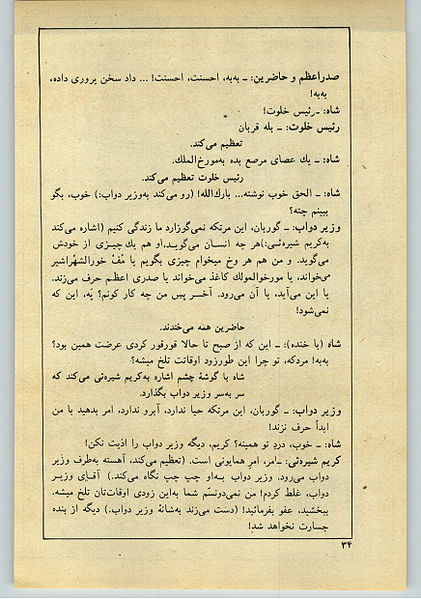 صدراعظم و حاضرین: ـ به‌به، احسنت، احسنت! ... داد سخن پروری داده،
به‌به!
شاه: ـ رئیس خلوت!
رئیس خلوت: ـ بله قربان
تعظیم می‌کند.
شاه: ـ یك عصای مرصع بده به‌مورخ‌الملك.
رئیس خلوت تعظیم می‌کند.
شاه: ـ الحق خوب نوشته... بارك‌الله! (رو می‌کند به‌وزیر دواب:) خوب، بگو
ببینم چته؟
وزیر دواب: ـ گوربان، این مرتکه نمی‌گوزارد ما زندگی کنیم (اشاره می‌کند
به‌کریم شیره‌ئی:)هر چه انسان می‌گوید.او هم یك چیزی از خودش
می‌گوید. و من هم هر وخ میخوام چیزی بگویم یا مُفْ خورالشهراشیر
می‌خواند، یا مورخوالمولك کاغذ می‌خواند یا صدری اعظم حرف می‌زند.
یا این می‌آید، یا آن می‌رود. آخر پس من چه کار کونم؟ پَه، این که
نمی‌شود!
حاضرین همه می‌خندند.
شاه (با خنده): ـ این که از صبح تا حالا قورقور کردی عرضت همین بود؟
به‌به! مردکه، تو چرا این طورزود اوقاتت تلخ میشه؟
شاه با گوشهٔ چشم اشاره به‌کریم شیره‌ئی می‌کند که
سر به‌سر وزیر دواب بگذارد.
وزیر دواب: ـ گوربان، این مرتکه حیا ندارد، آبرو ندارد، امر بدهید با من
ابداً حرف نزند!
شاه: ـ خوب، دردِ تو همینه؟ کریم، دیگه وزیر دواب را اذیت نکن!
کریم شیره‌ئی: ـ امر، امرِ همایونی است. (تعظیم می‌کند، آهسته به‌طرف وزیر
دواب می‌رود، وزیر دواب به‌او چپ چپ نگاه می‌کند.) آقای وزیر
دواب، غلط کردم! من نمی‌دونسّم شما به‌این زودی اوقات‌تان تلخ میشه.
ببخشید، عفو بفرمائید! (دست می‌زند به‌شانهٔ وزیر دواب.) دیگه از بنده
جسارت نخواهد شد!
۳۴